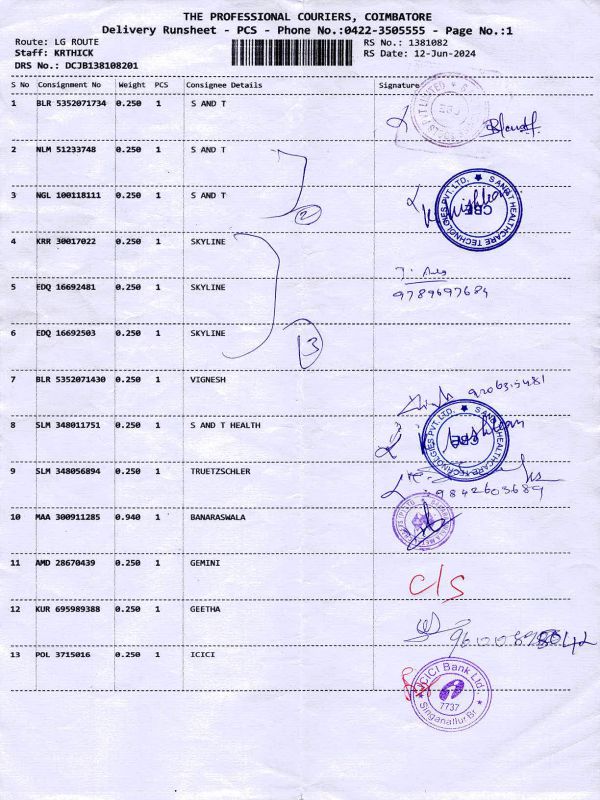 THE PROFESSIONAL COURIERS, COIMBATORE
Delivery Runsheet - PCS - Phone No.:0422-3505555 - Page No.:1
Route: LG ROUTE RS No.: 1381082
Staff: KRTHICK RS Date: 12-Jun-2024
DRS No.: DCJB138108201
S No Consignment No Weight PCS Consignee Details Signature
1 BLR 5352071734 0.250 1 S AND T
2 NLM 51233748 0.250 1 S AND T
3 NGL 100118111 0.250 1 S AND T
2
SANDT HEALTHCARE TECHNOLOGIES PVT. LTD.
CBE
4 KRR 30017022 0.250 1 SKYLINE
5 EDQ 16692481 0.250 1 SKYLINE
9789697684
6 EDQ 16692503 0.250 1 SKYLINE
13
7 BLR 5352071430 0.250 1 VIGNESH
8 SLM 348011751 0.250 1 S AND T HEALTH
SANDT HEALTHCARE TECHNOLOGIES PVT. LTD.
CBE
9 SLM 348056894 0.250 1 TRUETZSCHLER
9842603689
10 MAA 300911285 0.940 1 BANARASWALA
11 AMD 28670439 0.250 1 GEMINI
C/S
12 KUR 695989388 0.250 1 GEETHA
13 POL 3715016 0.250 1 ICICI
ICICI Bank Ltd.
7737
Singanallur Br